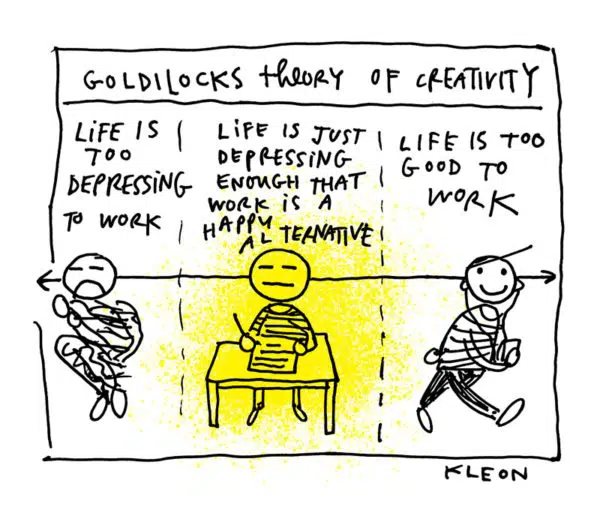 GOLDILOCKS theory OF CREATIVITY
LiFE IS
TOO
DEPRESSING
TO WORK
LiFE IS JUST
DEPRESSING
ENOUGH THAT
WORK IS A
HAPPY
ALTERNATIVE
LIFE IS TOO
GOOD TO
WORK
KLEON